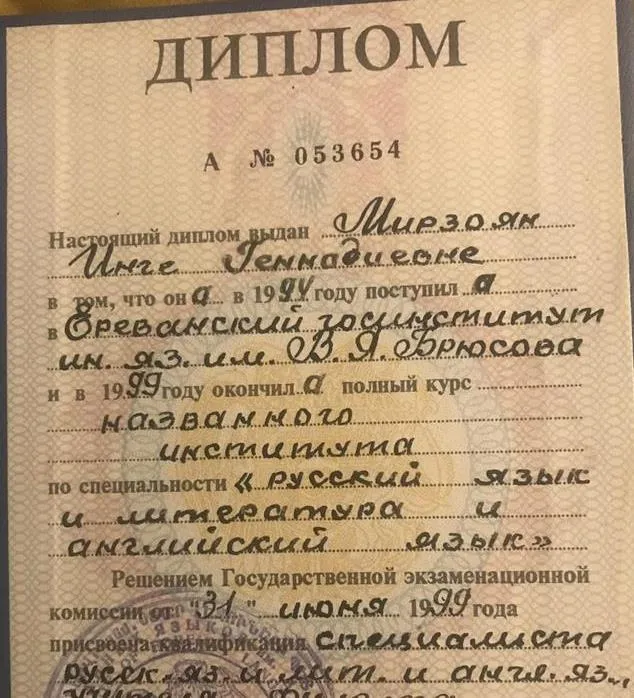 ДИПЛОМ
А № 053654
Настоящий диплом выдан Мирзоян
Инге Геннадиевне
в том, что она в 1994 году поступила
в Ереванский госинститут
ин. яз. им. В. Я. Брюсова
и в 1999 году окончила полный курс
названного
института
по специальности «русский язык
и литература и
английский язык»
Решением Государственной экзаменационной
комиссии от "31" июня 1999 года
присвоена квалификация специалиста
русск. яз. и лит. и англ. яз.,